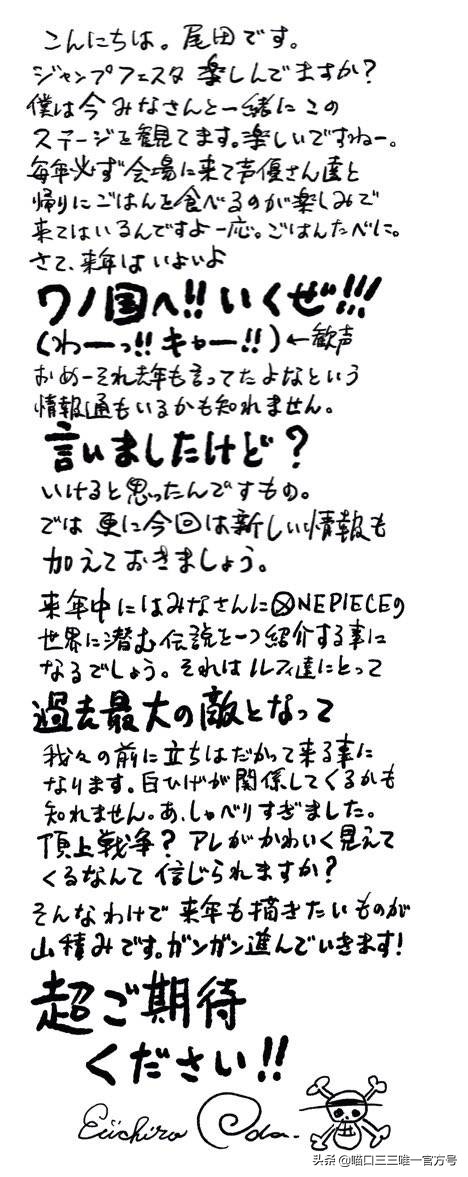 こんにちは。尾田です。
ジャンプフェスタ 楽しんでますか?
僕は今 みなさんと一緒に この
ステージを観てます。楽しいですねー。
毎年必ず会場に来て声優さん達と
帰りにごはんを食べるのが楽しみで
来てはいるんですよ一応。ごはんたべに。
さて、来年は いよいよ
ワノ国へ!! いくぜ!!!
(わーっ!! キャー!!)←歓声
おめーそれ去年も言ってたよなという
情報通もいるかも知れません。
言いましたけど?
いけると思ったんですもの。
では 更に今回は新しい情報も
加えておきましょう。
来年中にはみなさんにONE PIECEの
世界に潜む伝説を一つ紹介する事に
なるでしょう。それはルフィ達にとって
過去最大の敵となって
我々の前に立ちはだかって来る事に
なります。白ひげが関係してくるかも
知れません。あ、しゃべりすぎました。
頂上戦争? アレがかわいく見えて
くるなんて 信じられますか?
そんなわけで 来年も描きたいものが
山積みです。ガンガン進んでいきます!
超ご期待
ください!!
Eiichiro Oda.
头条 @喵口三三唯一官方号